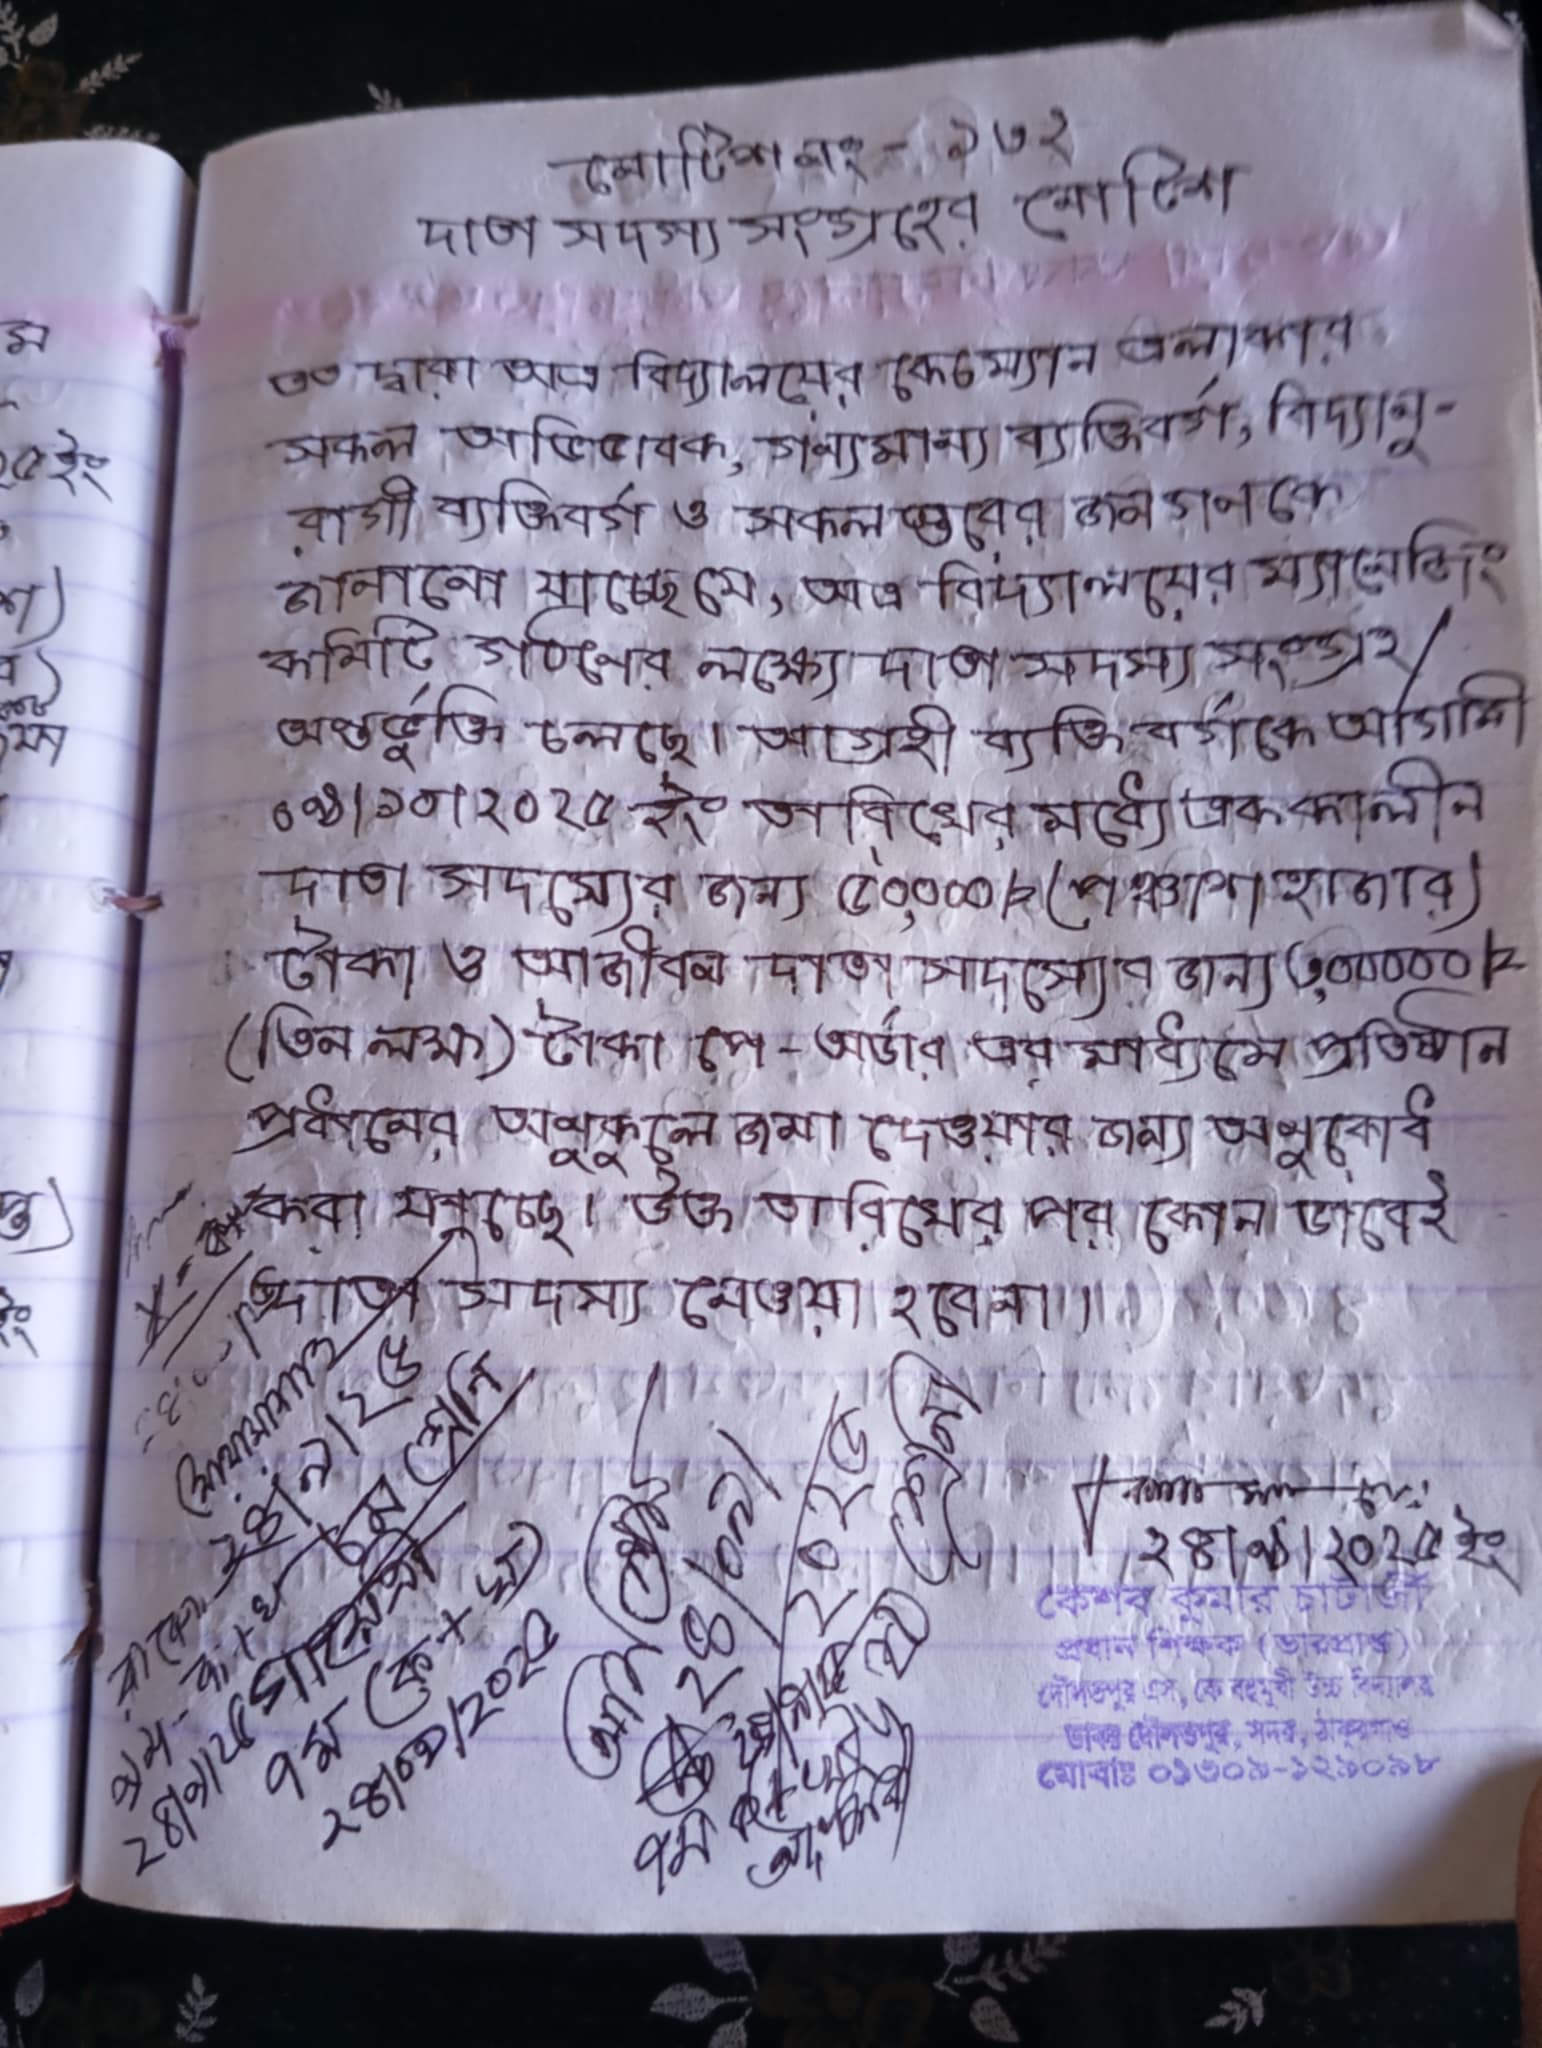 নোটিশ নং - ১৩২
দাতা সদস্য সংগ্রহের নোটিশ
এতদ্বারা অত্র বিদ্যালয়ের কেচম্যান এলাকার
সকল অভিভাবক, গন্যমান্য ব্যক্তিবর্গ, বিদ্যানু-
রাগী ব্যক্তিবর্গ ও সকল স্তরের জনগণকে
জানানো যাচ্ছে যে, অত্র বিদ্যালয়ের ম্যানেজিং
কমিটি গঠনের লক্ষ্যে দাতা সদস্য সংগ্রহ/
অন্তর্ভুক্তি চলছে। আগ্রহী ব্যক্তি বর্গকে আগামী
০৯/১০/২০২৫ ইং তারিখের মধ্যে এককালীন
দাতা সদস্যের জন্য ৫০,০০০/= (পঞ্চাশ হাজার)
টাকা ও আজীবন দাতা সদস্যের জন্য ৩,০০০০০/=
(তিন লক্ষ) টাকা পে-অর্ডার এর মাধ্যমে প্রতিষ্ঠান
প্রধানের অনুকুলে জমা দেওয়ার জন্য অনুরোধ
করা যাচ্ছে। উক্ত তারিখের পর কোন ভাবেই
দাতা সদস্য নেওয়া হবেনা।
২৪/৯/২৫
৮ম শ্রেনি
৭ম (ক+খ)
২৪/০৯/২০২৫
২৪/৯/২০২৫ ইং
কেশব কুমার চ্যাটার্জী
প্রধান শিক্ষক (ভারপ্রাপ্ত)
দৌলতপুর এস, কে বহুমুখী উচ্চ বিদ্যালয়
ডাকঃ দৌলতপুর, সদর, ঠাকুরগাঁও
মোবাঃ ০১৩০৯-১২৯০৯৮